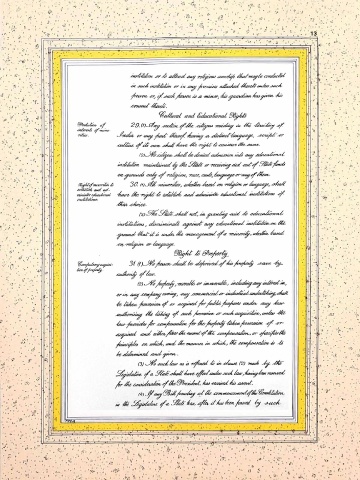 13
institution or to attend any religious worship that may be conducted
in such institution or in any premises attached thereto unless such
person or, if such person is a minor, his guardian has given his
consent thereto.
Cultural and Educational Rights
Protection of
interests of minor-
ities.
29. (1) Any section of the citizens residing in the territory of
India or any part thereof having a distinct language, script or
culture of its own shall have the right to conserve the same.
(2) No citizen shall be denied admission into any educational
institution maintained by the State or receiving aid out of State funds
on grounds only of religion, race, caste, language or any of them.
Right of minorities to
establish and ad-
minister educational
institutions.
30. (1) All minorities, whether based on religion or language, shall
have the right to establish and administer educational institutions of
their choice.
(2) The State shall not, in granting aid to educational
institutions, discriminate against any educational institution on the
ground that it is under the management of a minority, whether based
on religion or language.
Right to Property
Compulsory acquisi-
tion of property.
31. (1) No person shall be deprived of his property save by
authority of law.
(2) No property, movable or immovable, including any interest in,
or in any company owning, any commercial or industrial undertaking, shall
be taken possession of or acquired for public purposes under any law
authorising the taking of such possession or such acquisition, unless the
law provides for compensation for the property taken possession of or
acquired and either fixes the amount of the compensation, or specifies the
principles on which, and the manner in which, the compensation is to
be determined and given.
(3) No such law as is referred to in clause (2) made by the
Legislature of a State shall have effect unless such law, having been reserved
for the consideration of the President, has received his assent.
(4) If any Bill pending at the commencement of this Constitution
in the Legislature of a State has, after it has been passed by such